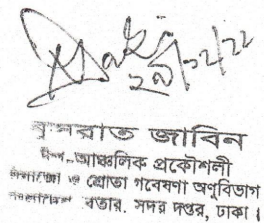 ২৯/১২/২২
নুসরাত জাবিন
উপ-আঞ্চলিক প্রকৌশলী
ও শ্রোতা গবেষণা অণুবিভাগ
বেতার, সদর দপ্তর, ঢাকা।